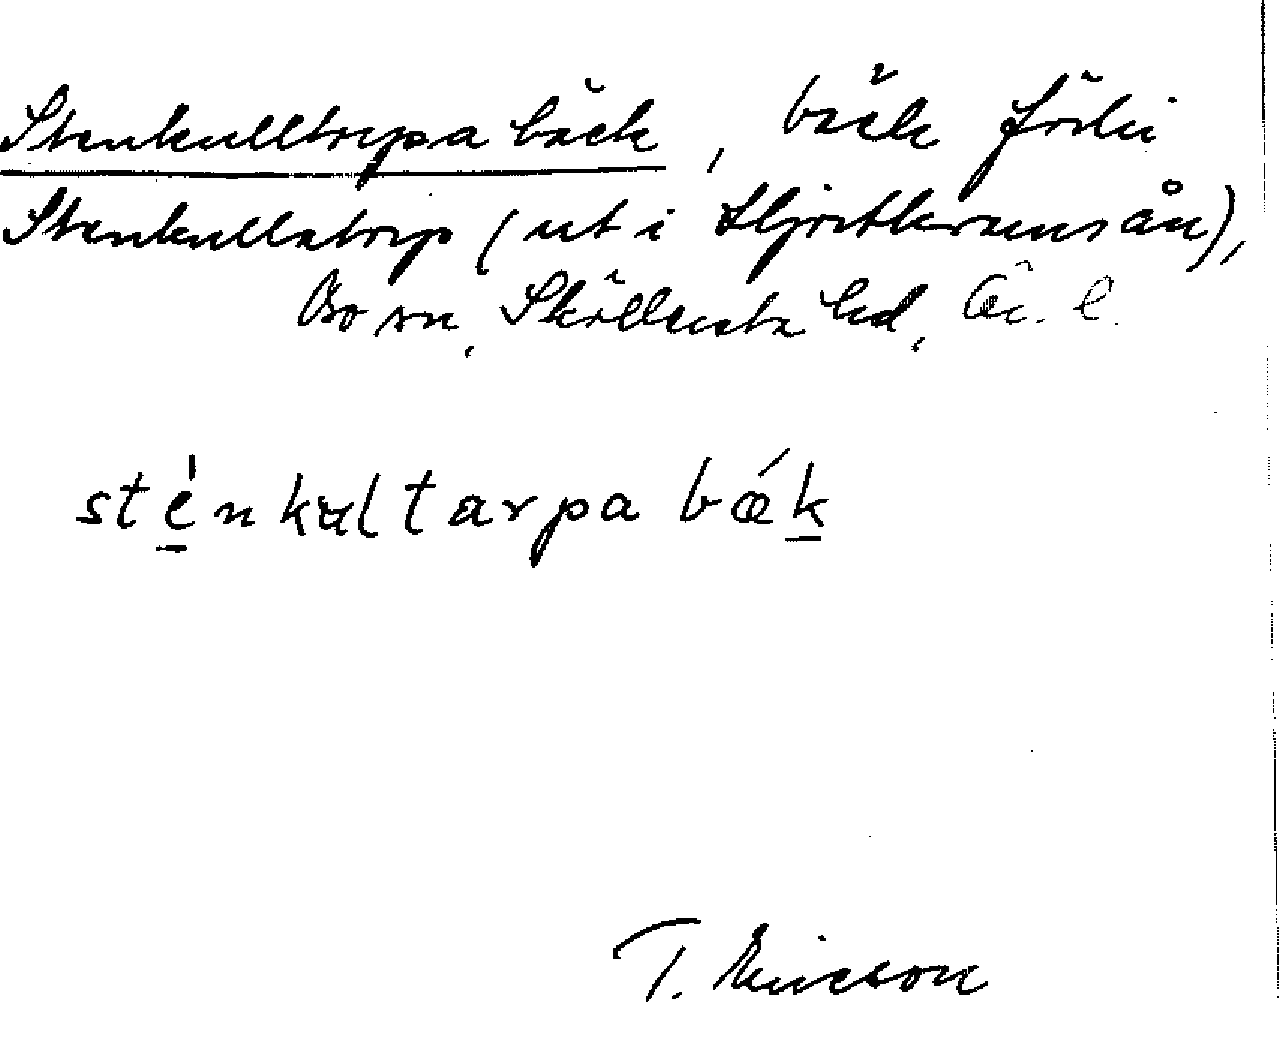 Stenkulltorpa bäck, bäck förbi
Stenkullatorp (ut i Hjortkvarnsån),
Bo sn, Sköllersta hd, Ör. l.
sténkultarpa bǽk
T. Ericson